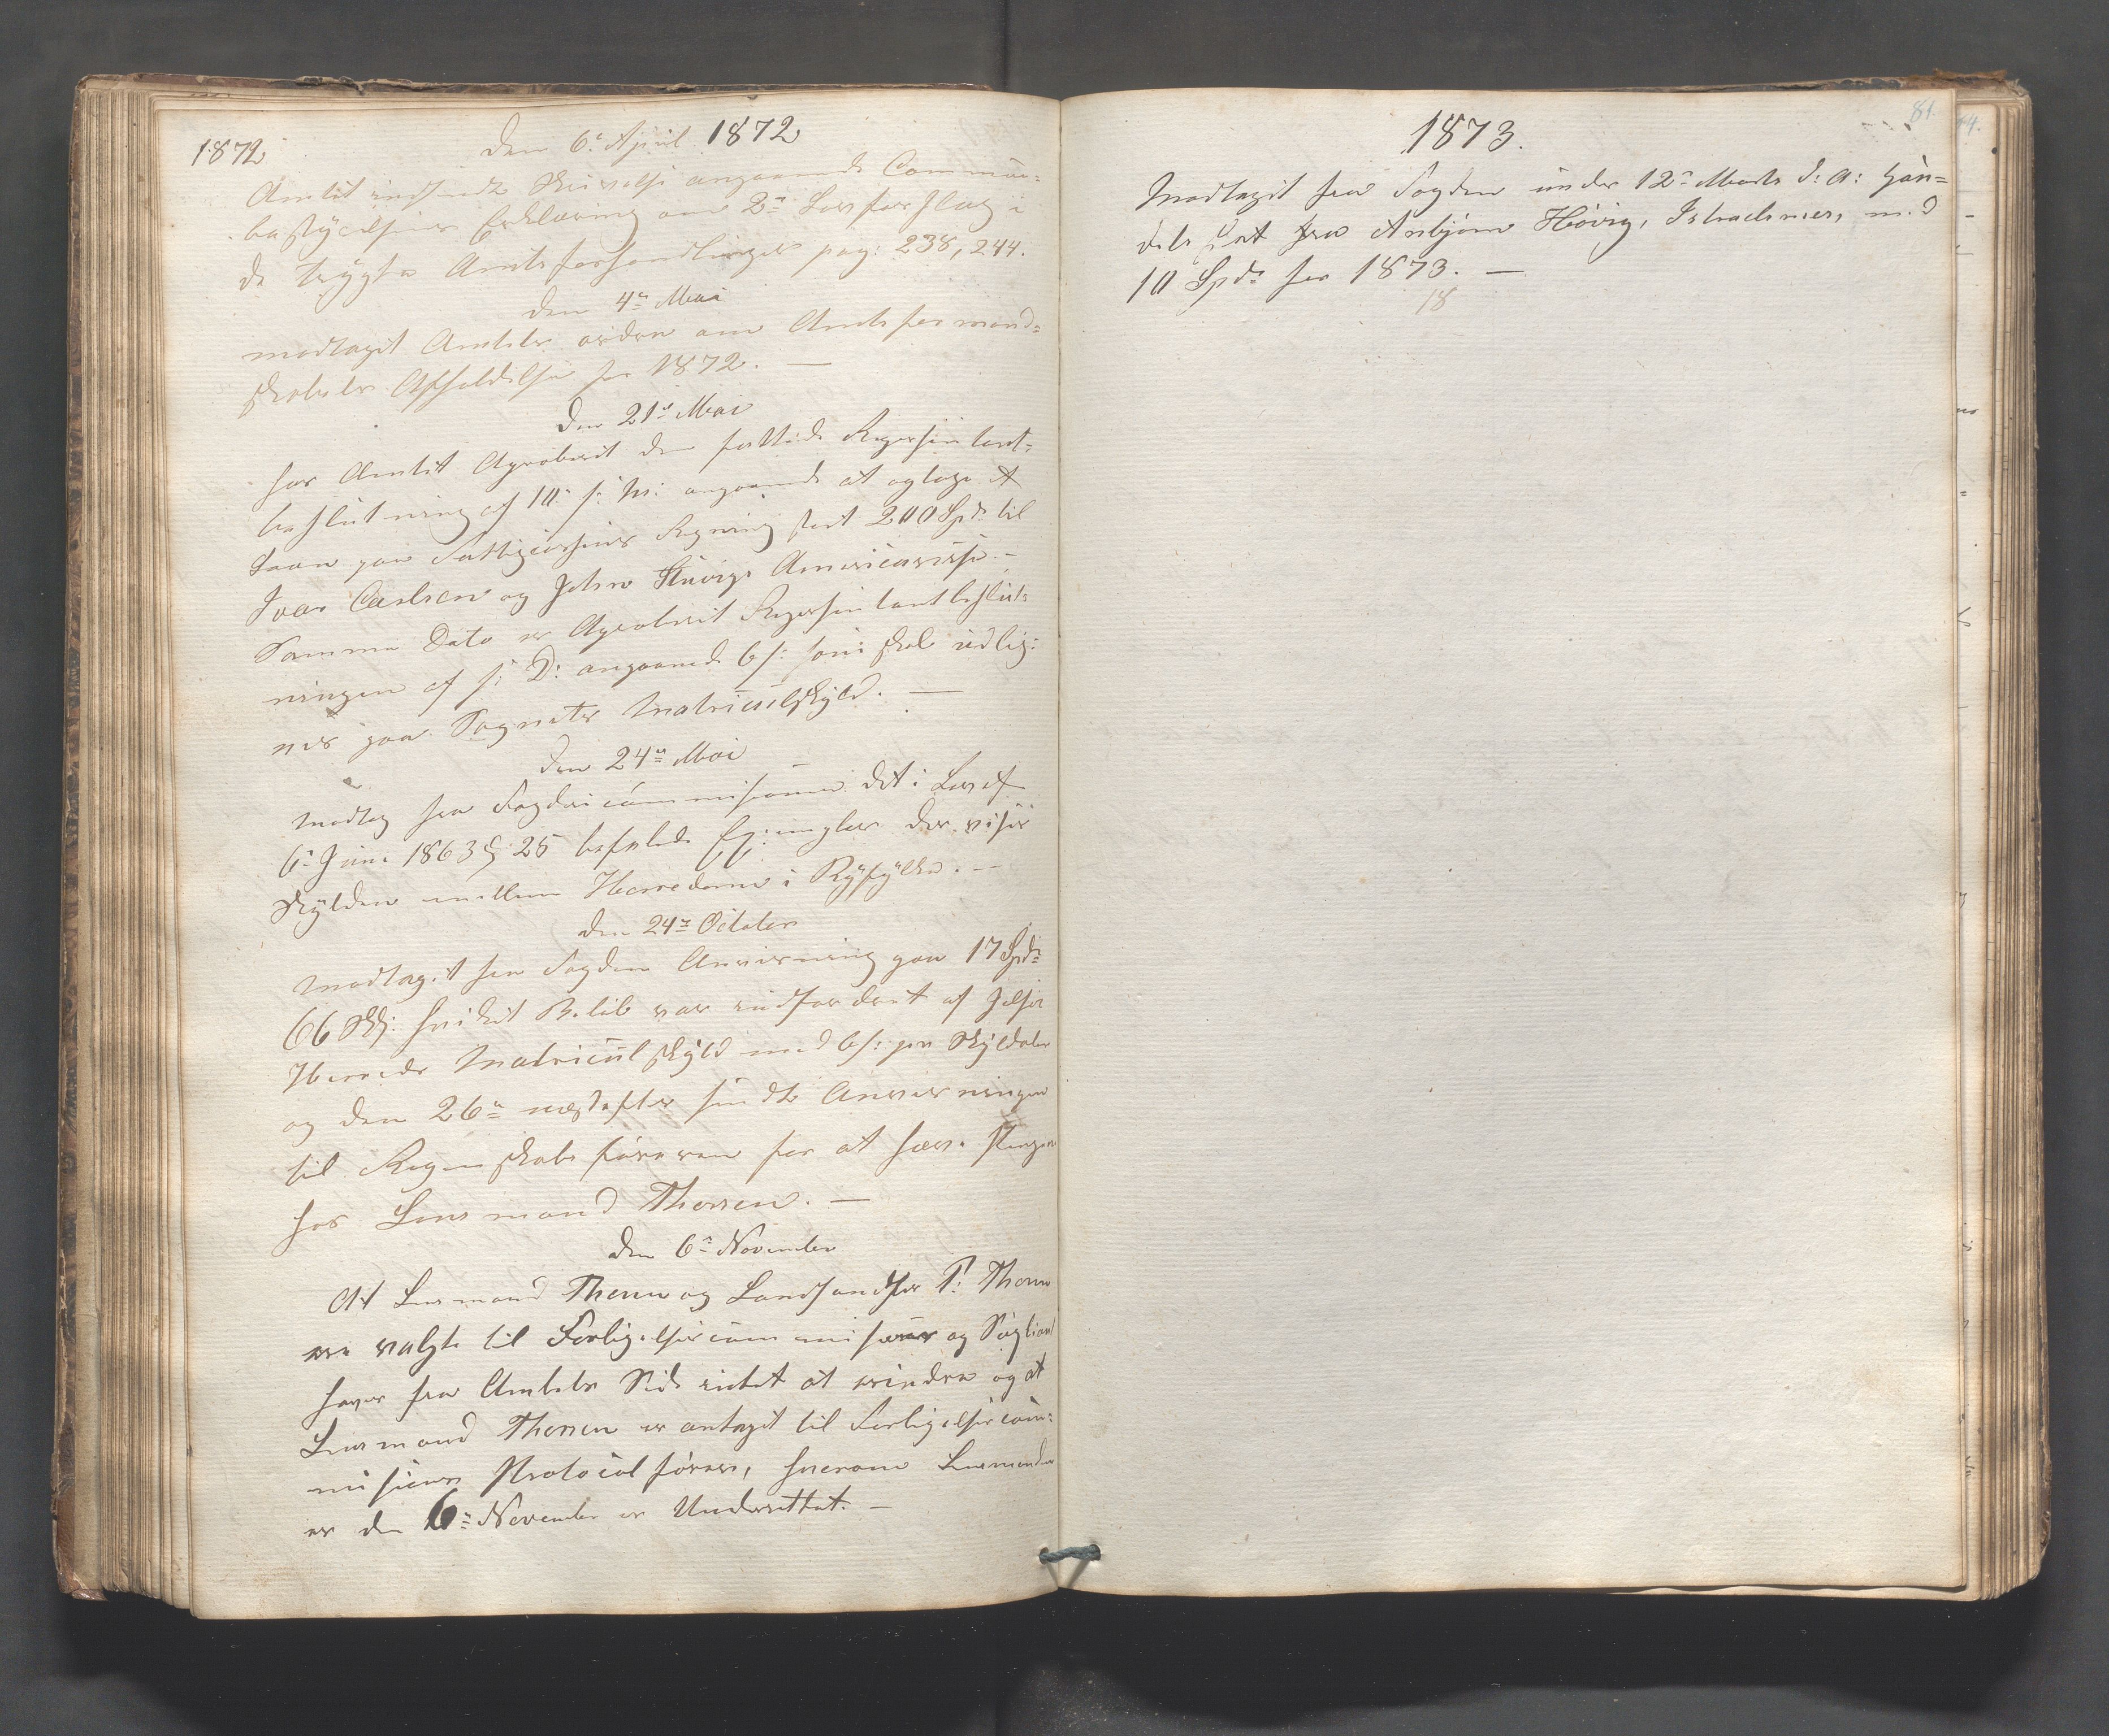 1872
Den 6te April 1872
Amtet indsendte Skrivelse angaaende Commune-
bestyrelsens Erklæring om 2de Lovforslag i
de trygte Amtsforhandlinger pag: 238, 244.
Den 4de Mai
modtaget Amtets orden om Amtsformand-
skabets Afholdelse for 1872. —
Den 21de Mai
har Amtet Aproberet den fattede Repersentant-
beslutning af 10: f: M: angaaende at optage et
Laan paa Fattigcassens Regning stort 200 Spd. til
Ivar Carlsen og John Høivigs Americareise. —
Samme Dato er Aproberet Repersentantbeslut-
ningen af s: D: angaaende 6 s: som skal udlig-
nes paa Sognets Matriculskyld. —
Den 24de Mai
modtog fra Fogdericommisionen det i Lov af
6te Juni 1863 § 25 befalede Exemplar der viser
Skylden mellem Herrederne i Ryfylke. —
Den 24de October
modtaget fra Fogden Anvisning paa 17 Spd.
66 Skj: hvilket Beløb var udfordret af Jelse
Herreds Matriculskyld med 6 s: pr Skylddaler
og den 26de næstefter sendte Anvisningen
til Regnskabsføreren for at hæve Penge
hos Lensmand Thorsen. —
Den 6te November
At Lensmand Thorsen og Landhandler T. Thorsen
ere valgte til Forligelsescommisærer og
haver fra Amtets Side intet at erindre og at
Lensmand Thorsen er antaget til Forligelsescom-
misionens Protocolfører, hvorom Lensmanden
er den 6te November er Underrettet. —
1873.
81.
Modtaget fra Fogden under 12te Marts d: A: Haan-
dels fra Asbjørn Høivig, med
10 Spd. for 1873. —
18